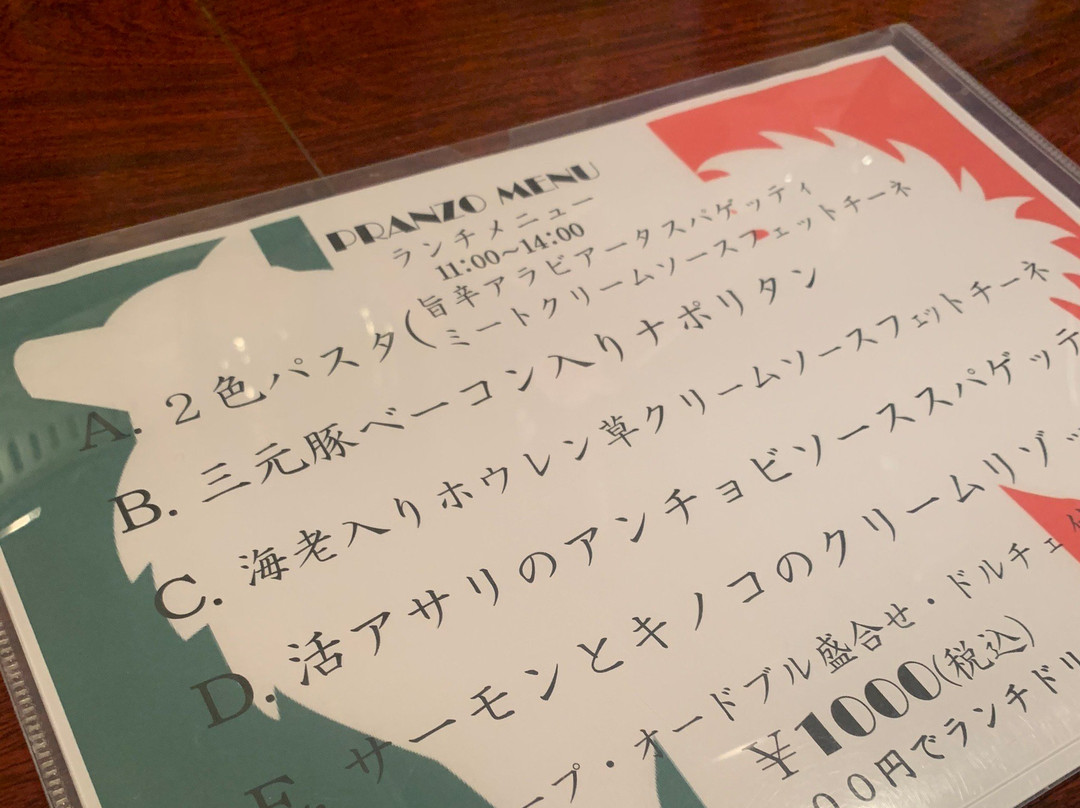 PRANZO MENU
ランチメニュー
11:00~14:00
A. 2色パスタ(旨辛アラビアータスパゲッティ
ミートクリームソースフェットチーネ
B. 三元豚ベーコン入りナポリタン
C. 海老入りホウレン草クリームソースフェットチーネ
D. 活アサリのアンチョビソーススパゲッテ
E. サーモンとキノコのクリームリゾッ
ープ・オードブル盛合せ・ドルチェ付
¥1000(税込)
00円でランチドリ